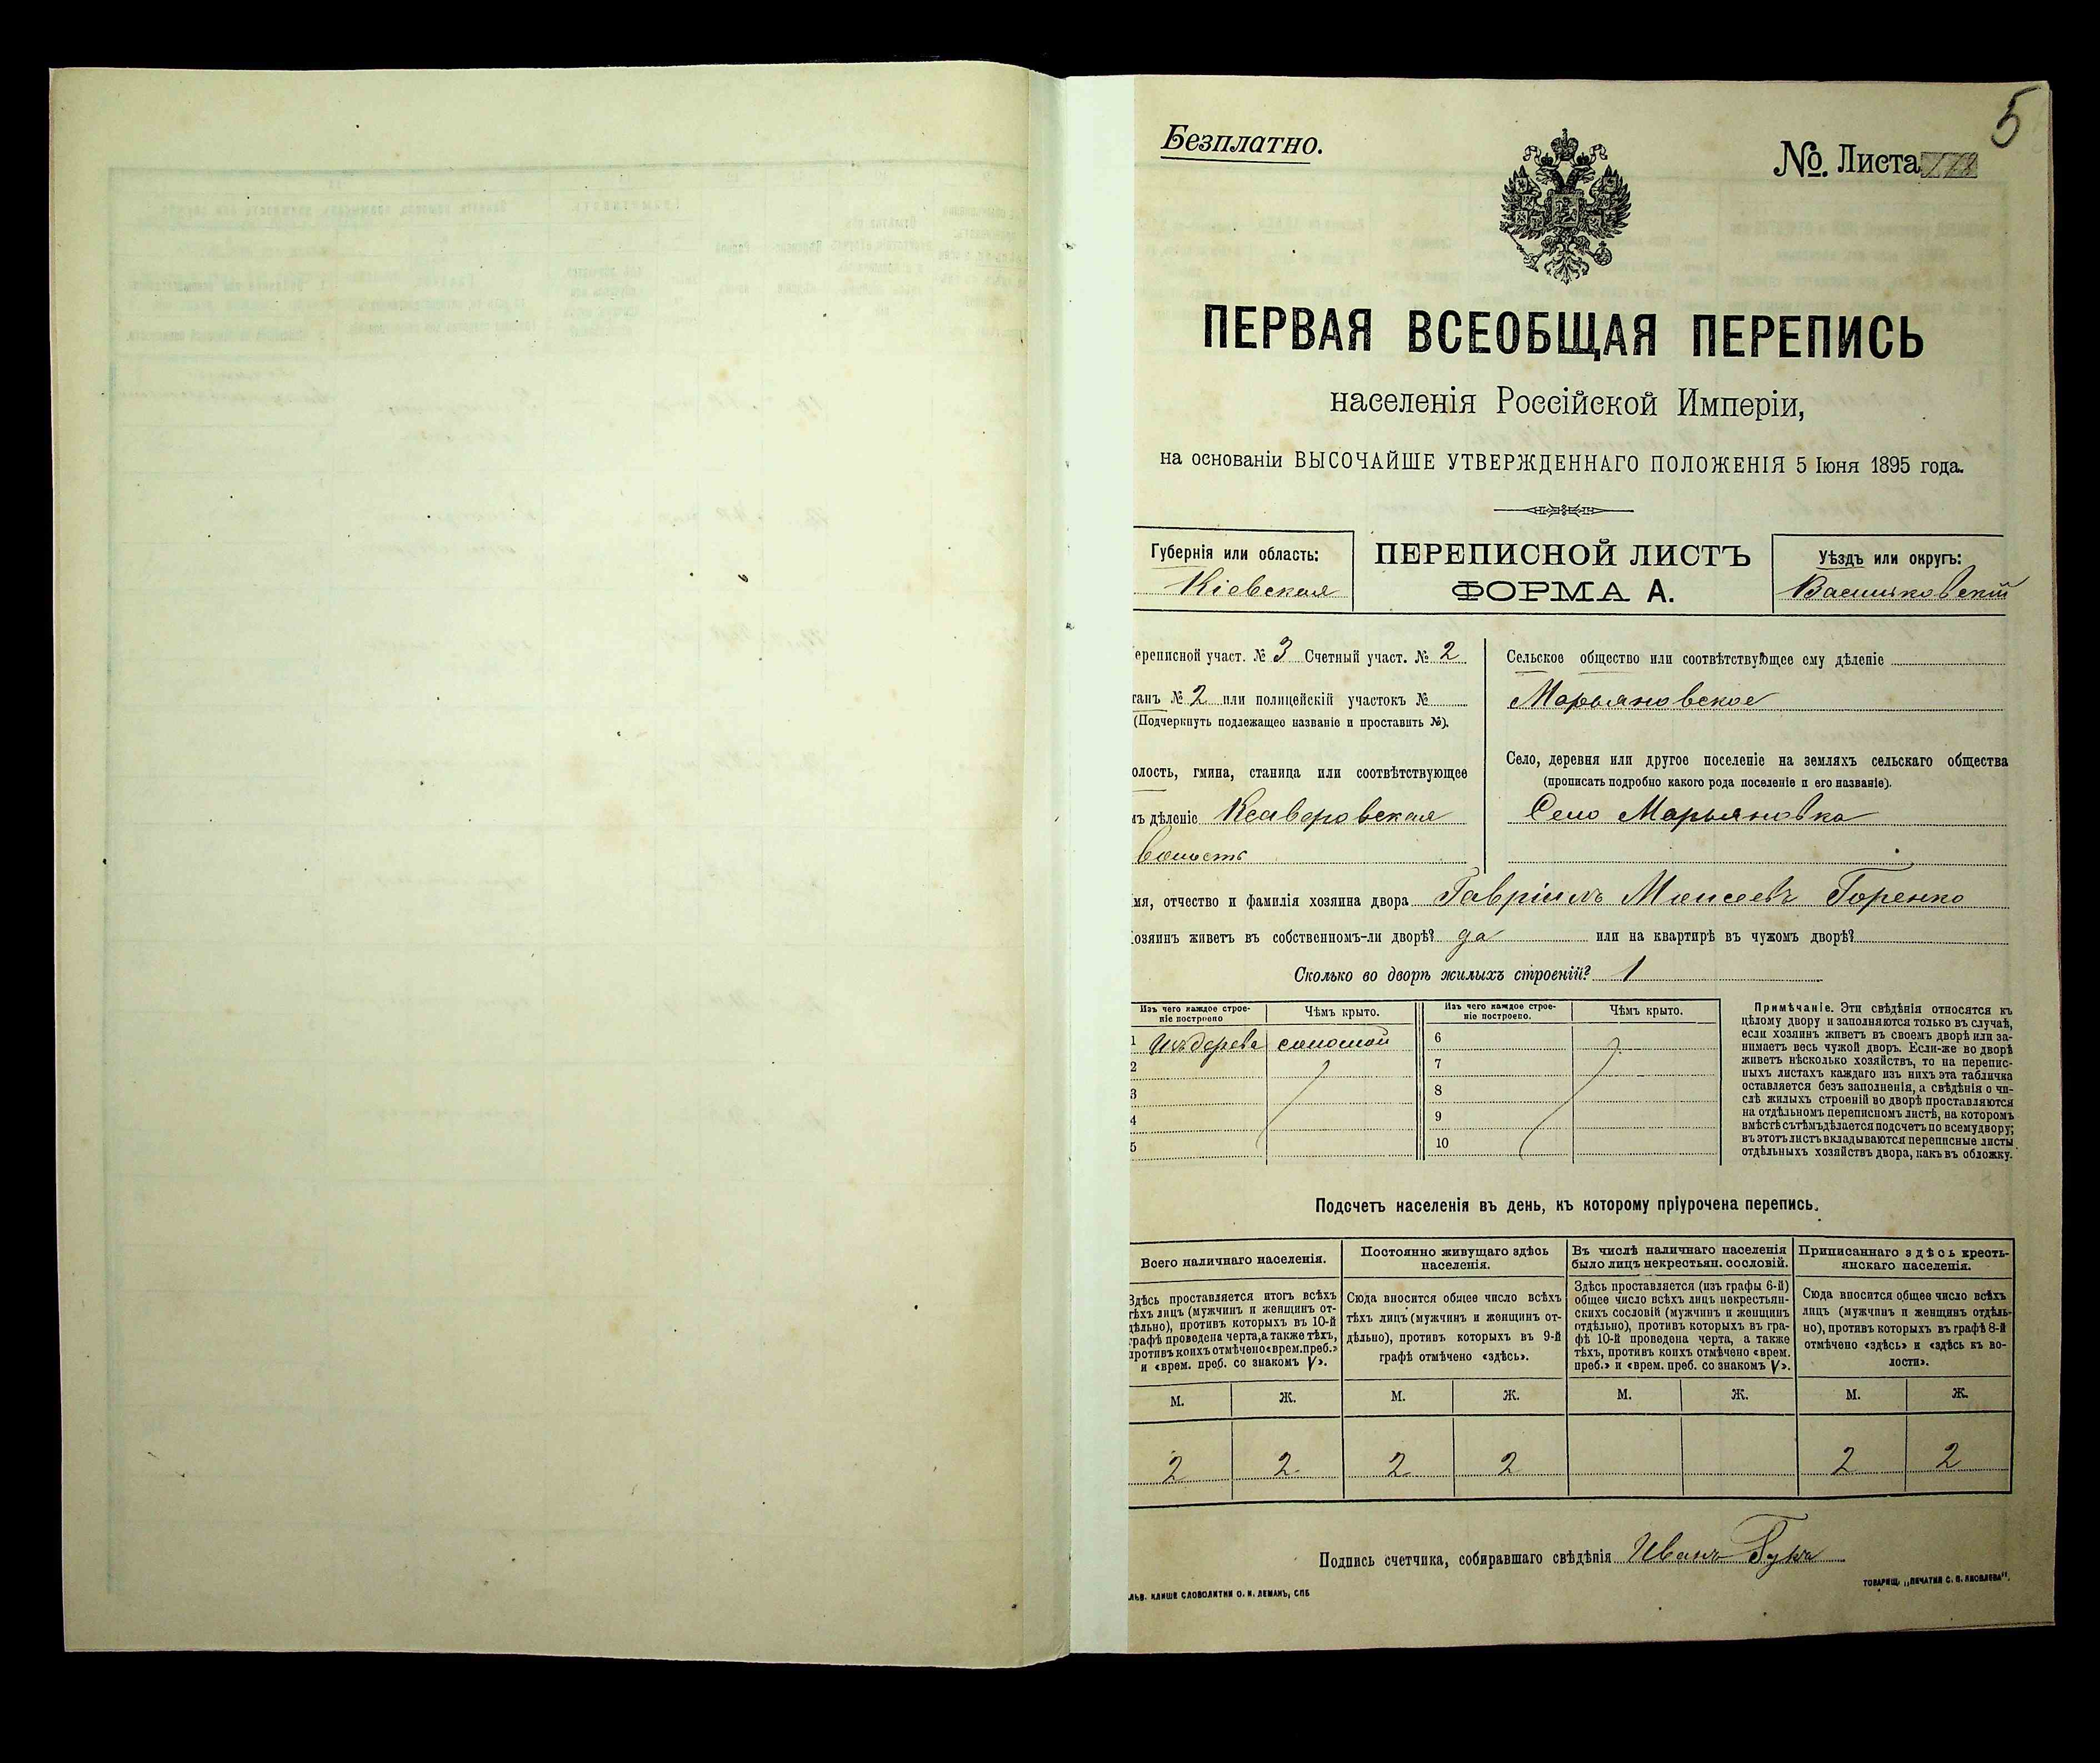 5
Безплатно.
№ Листа
ПЕРВАЯ ВСЕОБЩАЯ ПЕРЕПИСЬ
населенія Россійской Имперіи,
на основаніи ВЫСОЧАЙШЕ УТВЕРЖДЕННАГО ПОЛОЖЕНІЯ 5 Іюня 1895 года.
Губернія или область:
Кіевская
ПЕРЕПИСНОЙ ЛИСТЪ
ФОРМА А.
Уѣздъ или округъ:
Васильковскій
ереписной участ. № 3 Счетный участ. № 2
танъ № 2 или полицейскій участокъ №
(Подчеркнуть подлежащее названіе и проставить №).
олость, гмина, станица или соотвѣтствующее
мъ дѣленіе Ксаверовская
волость
Сельское общество или соотвѣтствующее ему дѣленіе
Марьяновское
Село, деревня или другое поселеніе на земляхъ сельскаго общества
(прописать подробно какого рода поселеніе и его названіе).
Село Марьяновка
мя, отчество и фамилія хозяина двора Гавріилъ Моисеевъ Горенко
озяинъ живетъ въ собственномъ-ли дворѣ? да или на квартирѣ въ чужомъ дворѣ?
Сколько во дворѣ жилыхъ строеній? 1
Изъ чего каждое строе-
ніе построено
Чѣмъ крыто.
Изъ чего каждое строе-
ніе построено.
Чѣмъ крыто.
1 Изъ дерева соломой 6
2 7
3 8
4 9
5 10
Примѣчаніе. Эти свѣдѣнія относятся къ
цѣлому двору и заполняются только въ случаѣ,
если хозяинъ живетъ въ своемъ дворѣ или за-
нимаетъ весь чужой дворъ. Если-же во дворѣ
живетъ нѣсколько хозяйствъ, то на перепис-
ныхъ листахъ каждаго изъ нихъ эта табличка
оставляется безъ заполненія, а свѣдѣнія о чи-
слѣ жилыхъ строеній во дворѣ проставляются
на отдѣльномъ переписномъ листѣ, на которомъ
вмѣстѣ съ тѣмъ дѣлается подсчетъ по всему двору;
въ этотъ листъ вкладываются переписные листы
отдѣльныхъ хозяйствъ двора, какъ въ обложку.
Подсчетъ населенія въ день, къ которому пріурочена перепись.
Всего наличнаго населенія.
Здѣсь проставляется итогъ всѣхъ
тѣхъ лицъ (мужчинъ и женщинъ от-
дѣльно), противъ которыхъ въ 10-й
графѣ проведена черта, а также тѣхъ,
противъ коихъ отмѣчено «врем. преб.»
и «врем. преб. со знакомъ V».
Постоянно живущаго здѣсь
населенія.
Сюда вносится общее число всѣхъ
тѣхъ лицъ (мужчинъ и женщинъ от-
дѣльно), противъ которыхъ въ 9-й
графѣ отмѣчено «здѣсь».
Въ числѣ наличнаго населенія
было лицъ некрестьян. сословій.
Здѣсь проставляется (изъ графы 6-й)
общее число всѣхъ лицъ некрестьян-
скихъ сословій (мужчинъ и женщинъ
отдѣльно), противъ которыхъ въ гра-
фѣ 10-й проведена черта, а также
тѣхъ, противъ коихъ отмѣчено «врем.
преб.» и «врем. преб. со знакомъ V».
Приписаннаго здѣсь кресть-
янскаго населенія.
Сюда вносится общее число всѣхъ
лицъ (мужчинъ и женщинъ отдѣль-
но), противъ которыхъ въ графѣ 8-й
отмѣчено «здѣсь» и «здѣсь къ во-
лости».
М. Ж. М. Ж. М. Ж. М. Ж.
2 2 2 2 2 2
Подпись счетчика, собиравшаго свѣдѣнія Иванъ Гукъ
льв. клише словолитни О. И. Леманъ, СПБ
Товарищ. „Печатня С. П. Яковлева".